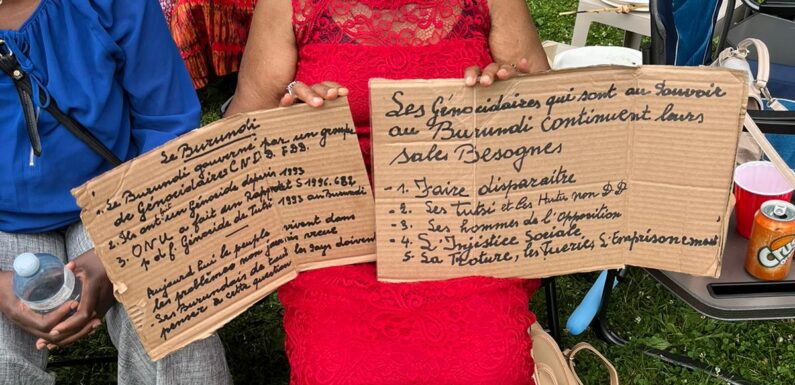 Le Burundi
1. Le Burundi gouverné par un groupe
de Génocidaires C.N.D.D. F.D.D.
2. Ils ont un Génocide depuis 1993
3. ONU a fait un Rapport S 1996. 682
Génocide de Tutsi 1993 au Burundi
Aujourd'hui le peuple vivent dans
les problèmes non jamais
- Les Burundais de tout les pays doivent
penser à cette question
Les Génocidaires qui sont au Pouvoir
au Burundi Continuent leurs
sales Besognes
- 1. Faire disparaître
- 2. Les Tutsi et les Hutu non D.D
- 3. Les hommes de l'Opposition
- 4. L'Injustice Sociale,
5. La Torture, les Tueries L'Emprisonement
Crush